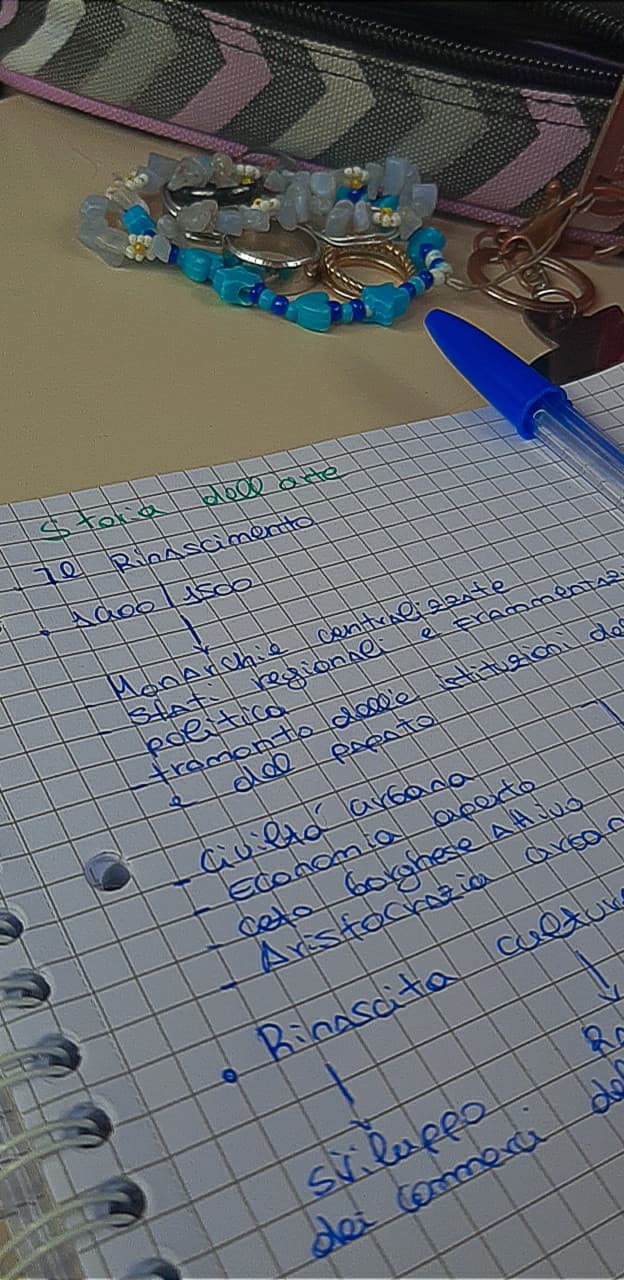 Storia dell arte
Il Rinascimento
1400/1500
- Monarchie centralizzate
- Stati regionali e frammentaz
politica
- tramonto delle istituzioni del
e del papato
- Civiltà urbana
- Economia aperta
- ceto borghese Attivo
- Aristocrazia urban
• Rinascita cultur
sviluppo
dei commerci de